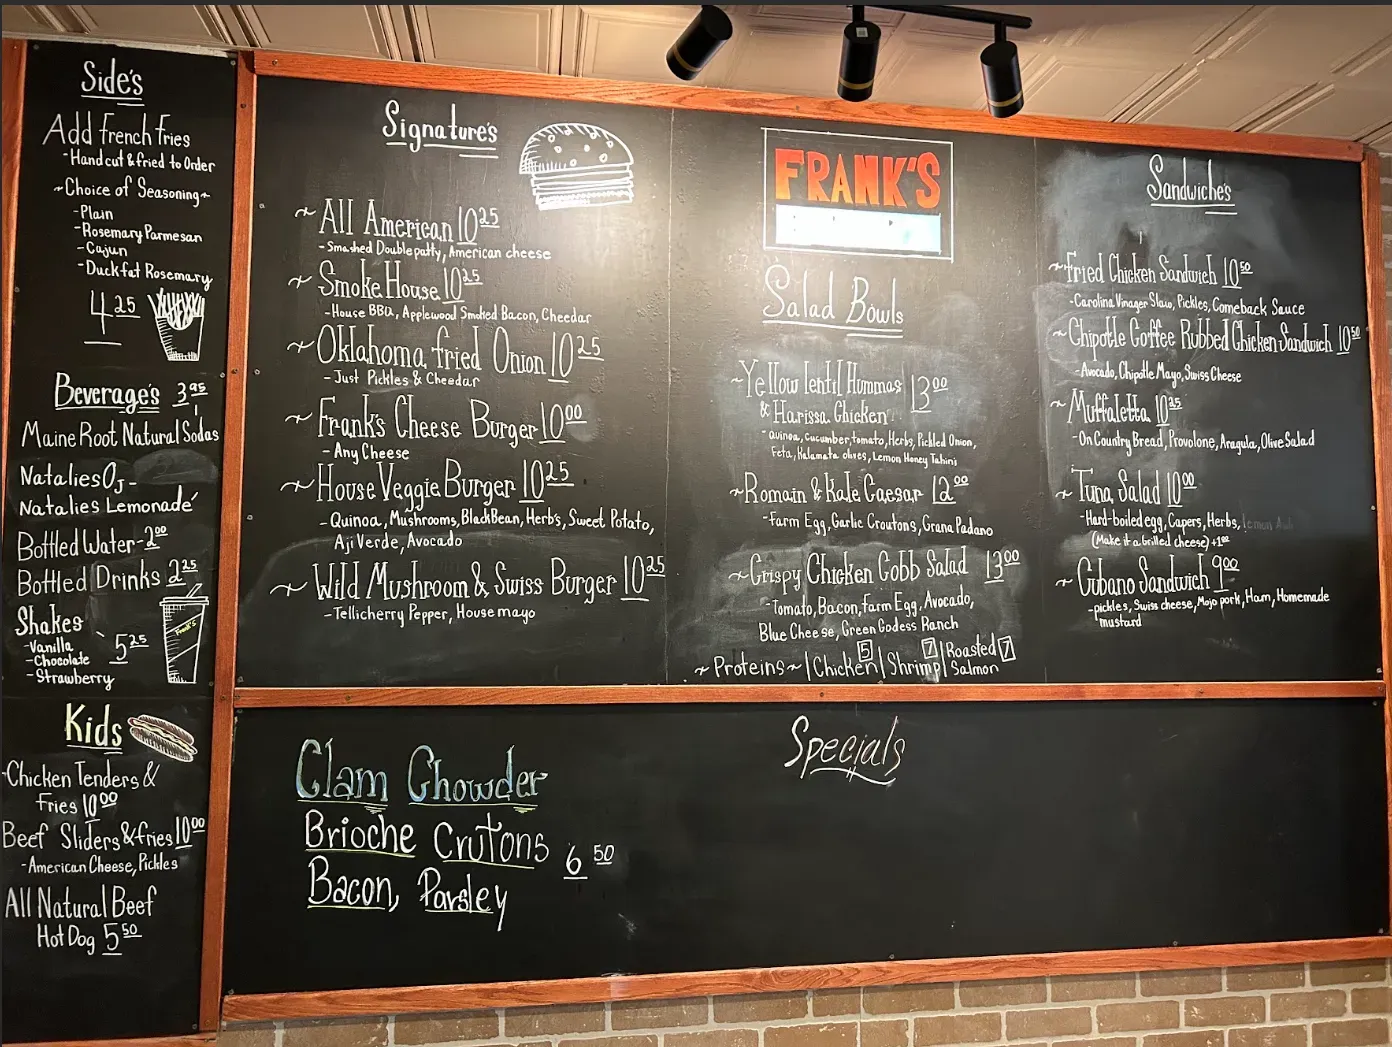 Side's
Add French Fries
-Hand cut & fried to Order
~Choice of Seasoning~
-Plain
-Rosemary Parmesan
-Cajun
-Duck fat Rosemary
4.25
Beverage's 3.95
Maine Root Natural Sodas
Natalies OJ-
Natalies Lemonade
Bottled Water-2.00
Bottled Drinks 2.25
Shakes
-Vanilla
-Chocolate
-Strawberry
5.25
Frank's
Kids
-Chicken Tenders &
Fries 10.00
Beef Sliders & fries 10.00
-American Cheese, Pickles
All Natural Beef
Hot Dog 5.50
Signature's
~All American 10.25
-Smashed Double patty, American cheese
~Smoke House 10.25
-House BBQ, Applewood Smoked Bacon, Cheedar
~Oklahoma fried Onion 10.25
-Just Pickles & Cheedar
~Frank's Cheese Burger 10.00
-Any Cheese
~House Veggie Burger 10.25
-Quinoa, Mushrooms, Black Bean, Herb's, Sweet Potato,
Aji Verde, Avocado
~Wild Mushroom & Swiss Burger 10.25
-Tellicherry Pepper, House mayo
FRANK'S
Salad Bowls
~Yellow lentil Hummas 13.00
& Harissa Chicken
-Quinoa, cucumber, tomato, Herbs, Pickled Onion,
Feta, Kalamata olives, Lemon Honey Tahini
~Romain & Kale Caesar 12.00
-Farm Egg, Garlic Croutons, Grana Padano
~Crispy Chicken Cobb Salad 13.00
-Tomato, Bacon, Farm Egg, Avocado,
Blue Cheese, Green Godess Ranch
~Proteins~ | Chicken 5 | Shrimp 7 | Roasted 7
Salmon
Sandwiche's
~Fried Chicken Sandwich 10.50
-Carolina Vinager Slaw, Pickles, Comeback Sauce
~Chipotle Coffee Rubbed Chicken Sandwich 10.50
-Avocado, Chipotle Mayo, Swiss Cheese
~Muffaletta 10.25
-On Country Bread, Provolone, Aragula, Olive Salad
~Tuna Salad 10.00
-Hard-boiled egg, Capers, Herbs, lemon
(Make it a Grilled cheese) +1.00
~Cubano Sandwich 9.00
-pickles, Swiss cheese, Mojo pork, Ham, Homemade
mustard
Specials
Clam Chowder
Brioche Crutons 6.50
Bacon, Parsley